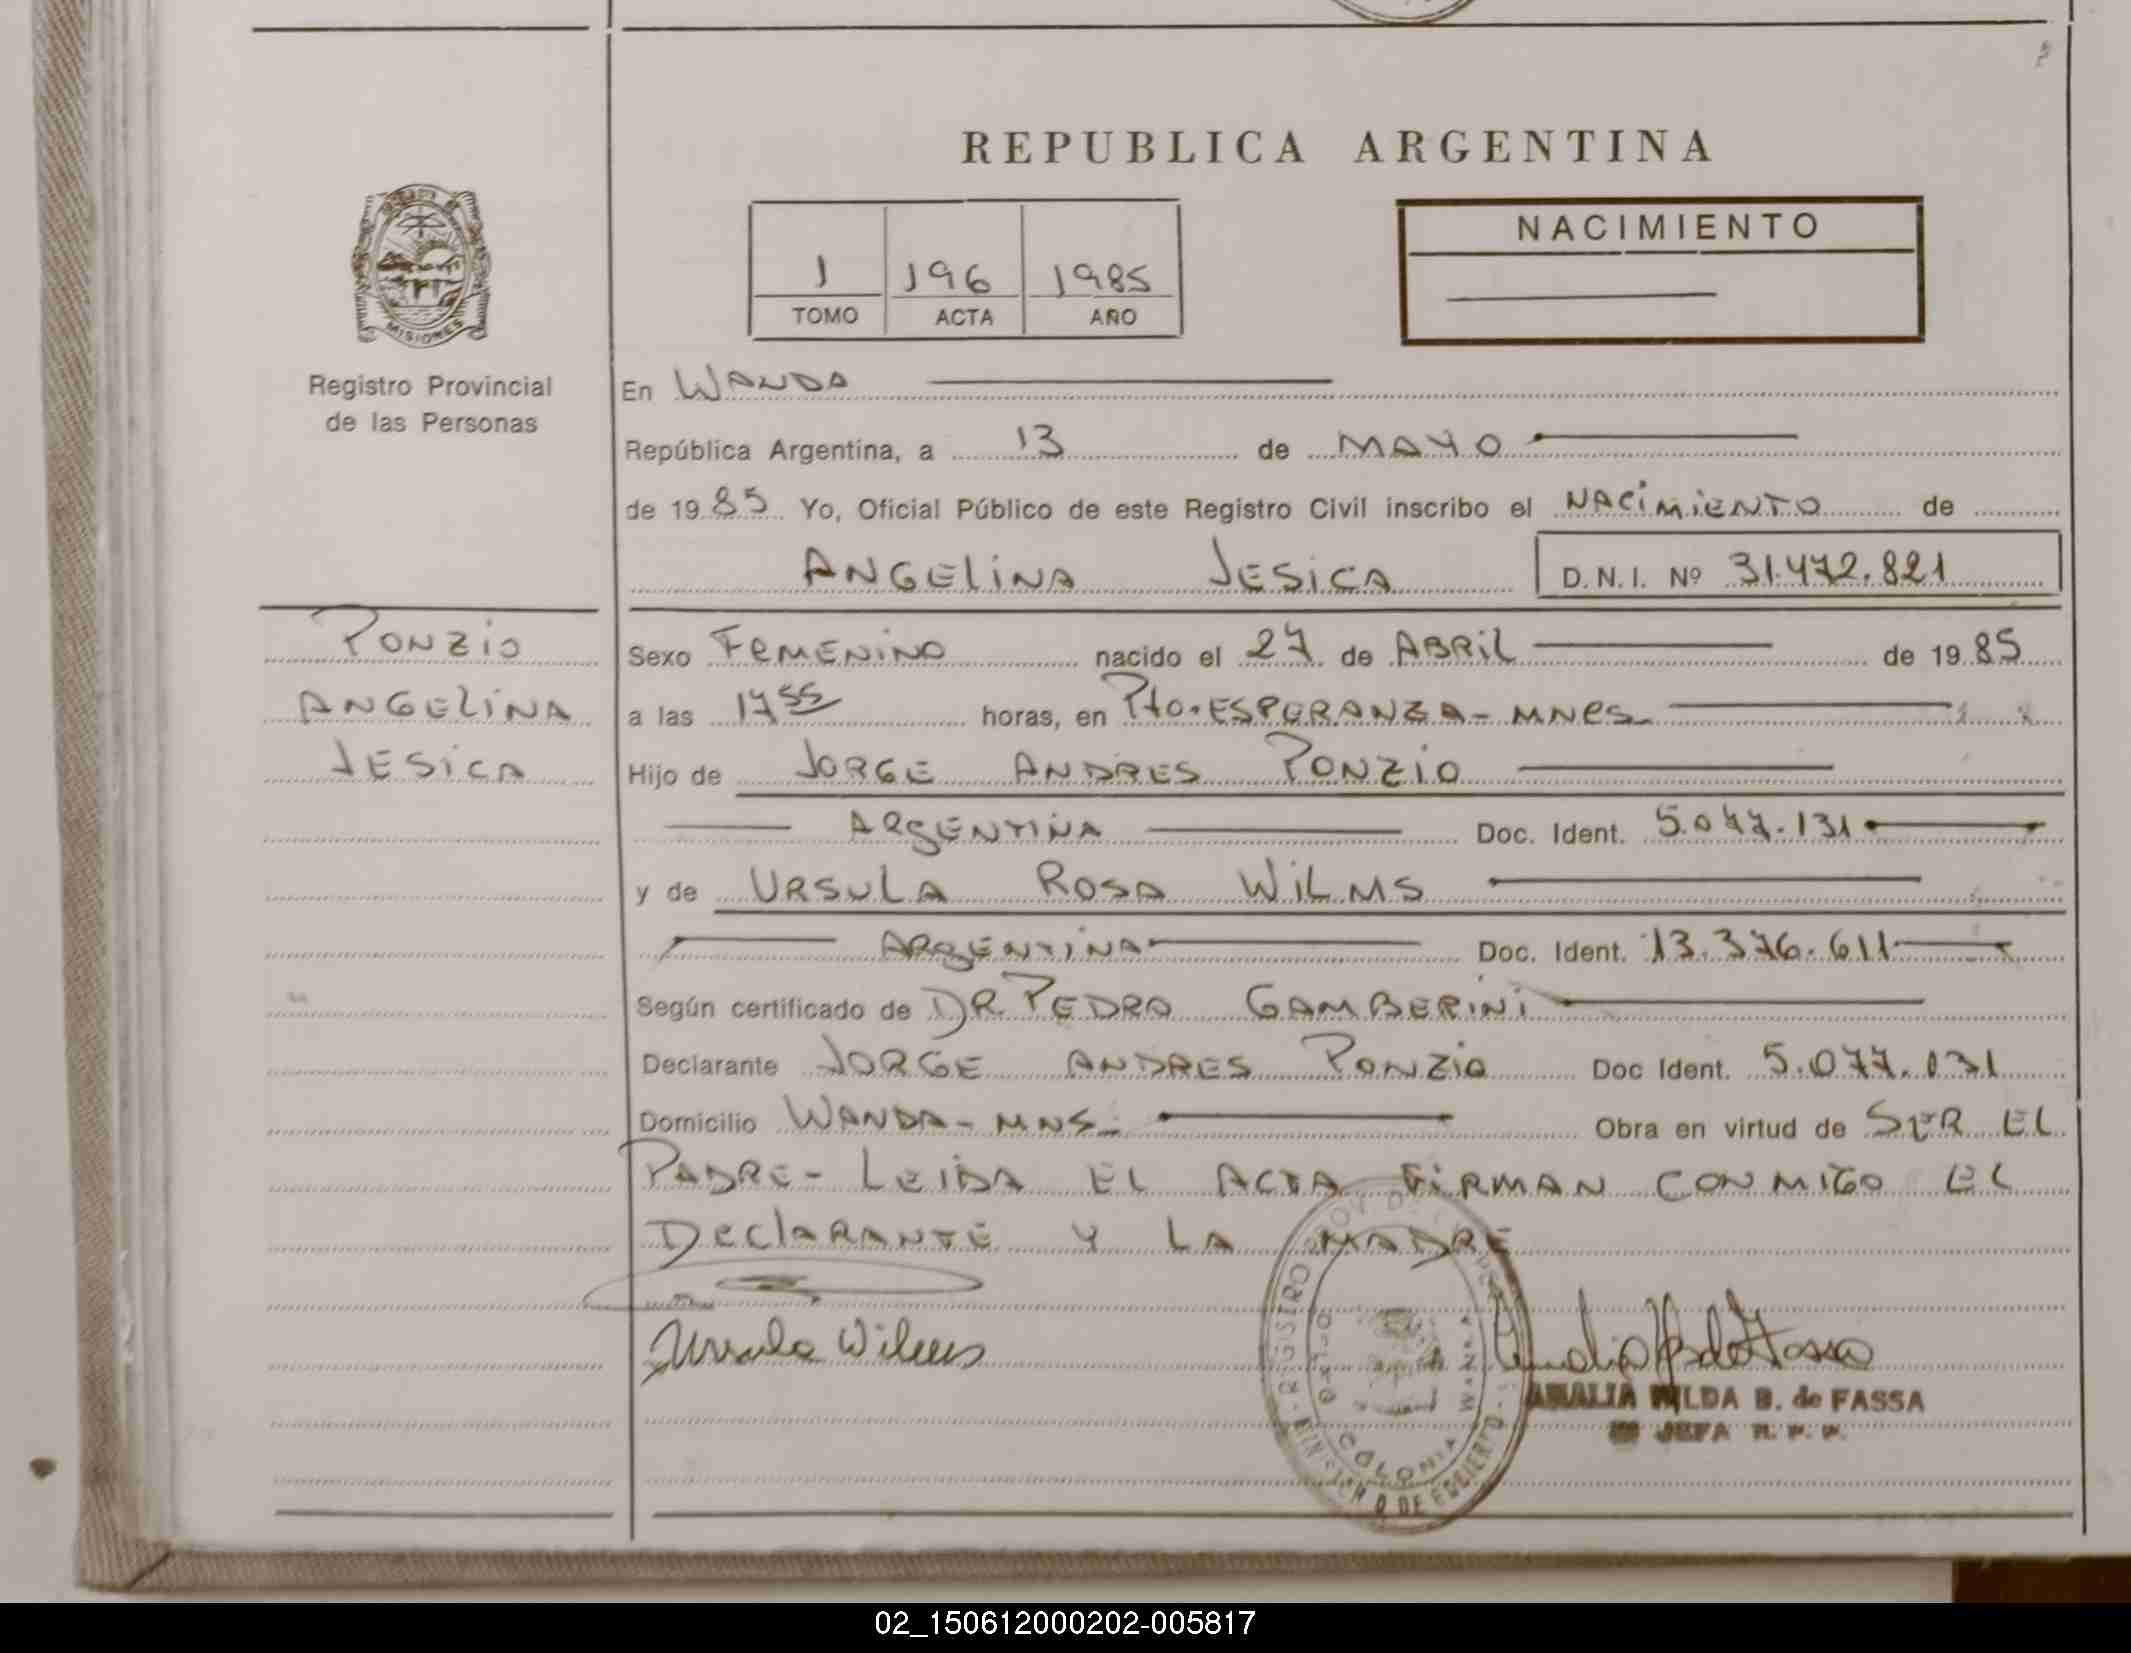 REPUBLICA ARGENTINA
MISIONES
Registro Provincial
de las Personas
1 196 1985
TOMO ACTA AÑO
NACIMIENTO
En WANDA
República Argentina, a 13 de MAYO
de 1985 Yo, Oficial Público de este Registro Civil inscribo el NACIMIENTO de
ANGELINA JESICA D.N.I. Nº 31.472.821
PONZIO
ANGELINA
JESICA
Sexo FEMENINO nacido el 27 de ABRIL de 1985
a las 17 55 horas, en Pto. ESPERANZA - MNES
Hijo de JORGE ANDRES PONZIO
ARGENTINA Doc. Ident. 5.077.131
y de URSULA ROSA WILMS
ARGENTINA Doc. Ident. 13.376.611
Según certificado de DR PEDRO GAMBERINI
Declarante JORGE ANDRES PONZIO Doc Ident. 5.077.031
Domicilio WANDA - MNS - Obra en virtud de SER EL
PADRE - LEIDA EL ACTA FIRMAN CONMIGO EL
DECLARANTE Y LA MADRE
Ursula Wilms
AMALIA HILDA B. de FASSA
JEFA R. P. P.
COLONIA WANDA
02_150612000202-005817